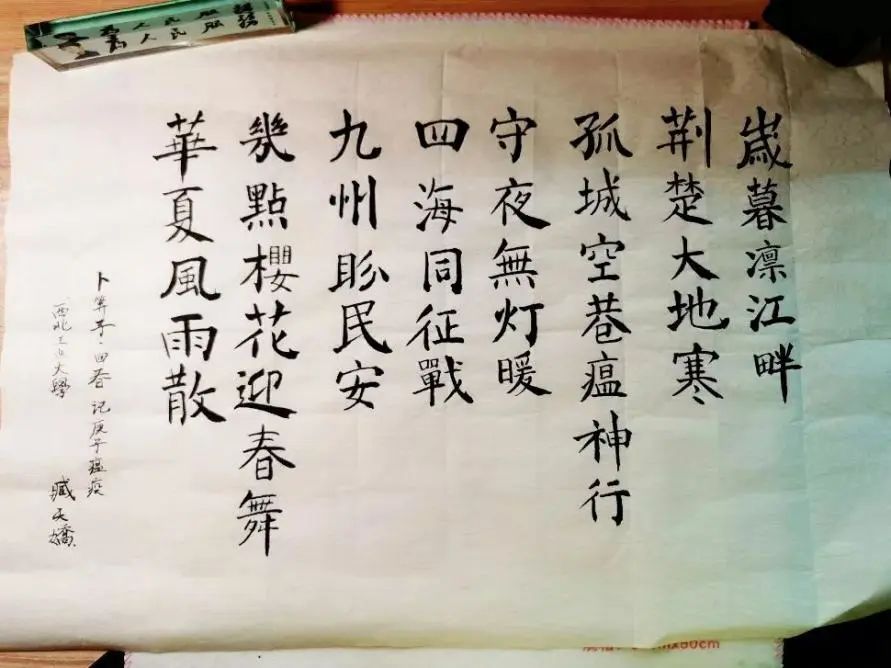 歲暮凛江畔
荆楚大地寒
孤城空巷瘟神行
守夜無灯暖
四海同征戰
九州盼民安
幾點櫻花迎春舞
華夏風雨散
卜算子·回春 记庚子瘟疫
西北工业大學
臧天嬌
為人民服務